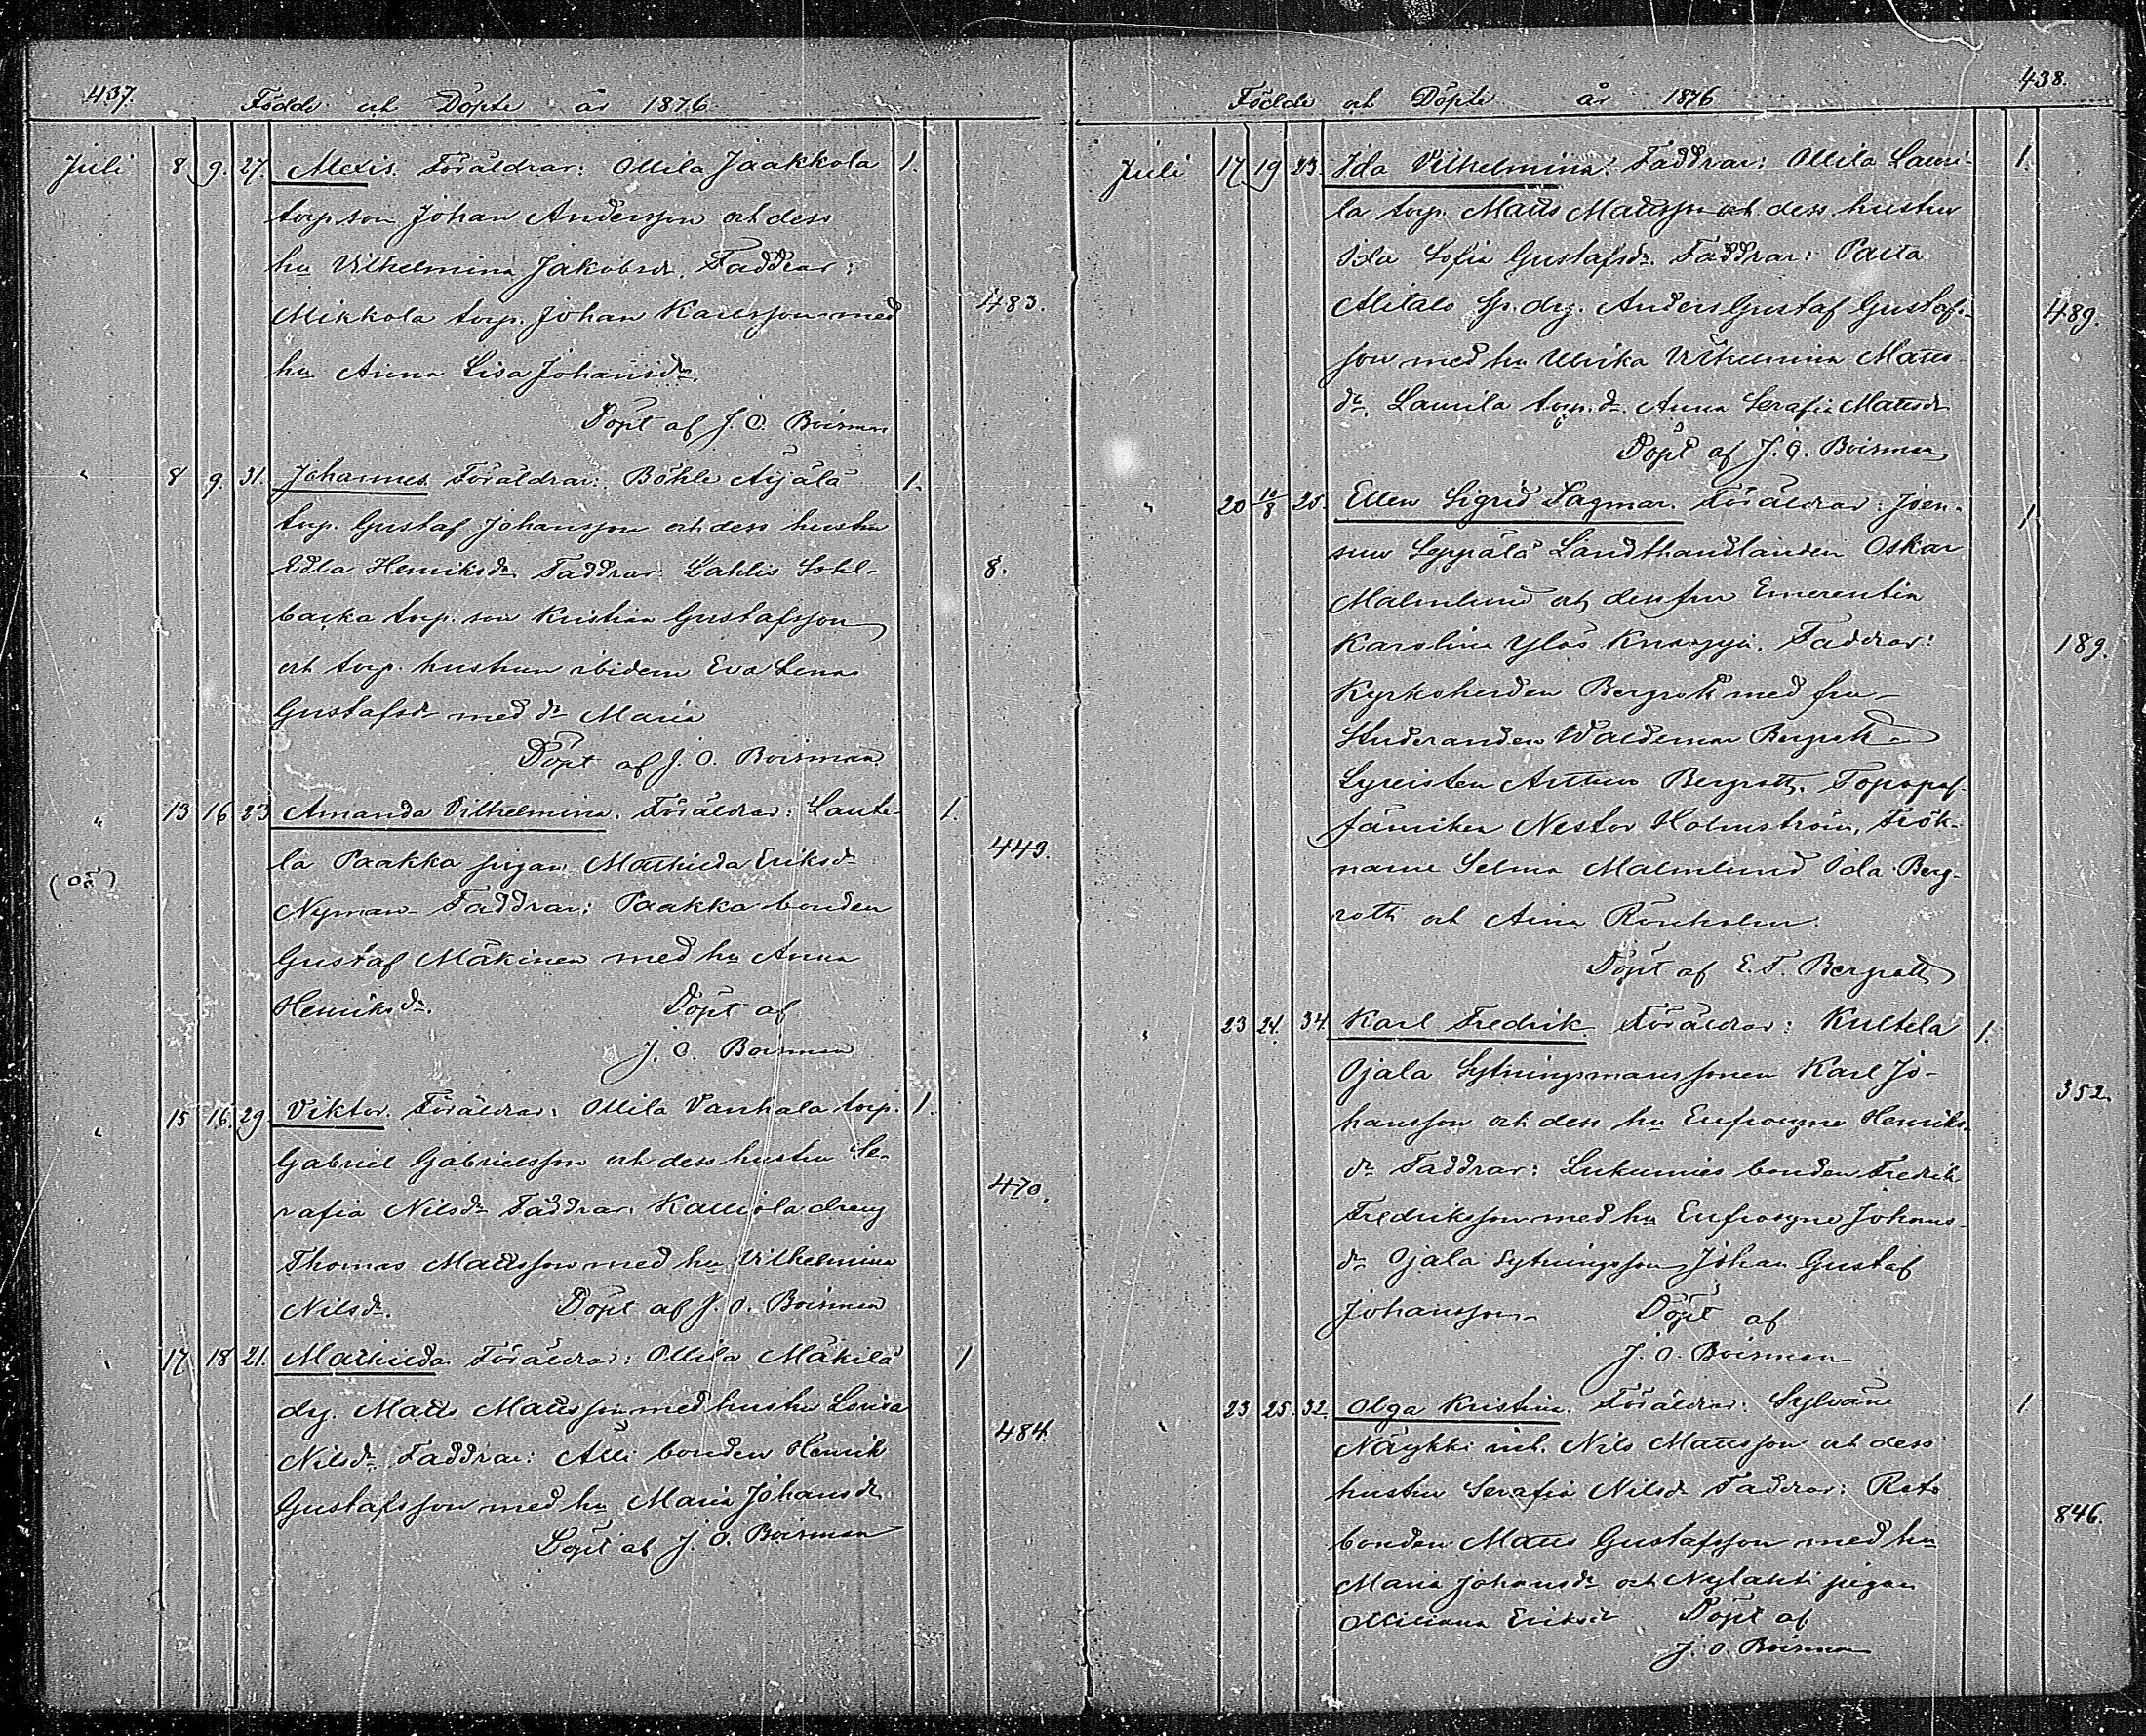 437.
Födde och Döpte år 1876.
Juli 8 9. 27. Alexis. Föräldrar: Ollila Jaakkola 1.
torp.son Johan Andersson och dess
hu Vilhelmina Jakobsdr. Faddrar:
Mikkola torp. Johan Karlsson med 483.
hu Anna Lisa Johansdr.
Döpt af J. O. Boisman
" 8 9. 31. Johannes. Föräldrar: Böhle Äijälä 1.
torp. Gustaf Johansson och dess hustru
Edla Henriksdr. Faddrar: Lahlis Sohl- 8.
backa torp. son Kristian Gustafsson
och torp. hustrun ibidem Eva Lena
Gustafsdr med dr Maria
Döpt af J. O. Boisman
" 13 16 23 Amanda Vilhelmina. Föräldrar: Laute- 1.
(oä) la Paakka pigan Mathilda Eriksdr 443.
Nyman. Faddrar: Paakka bonden
Gustaf Mäkinen med hu Anna
Henriksdr. Döpt af
J. O. Boisman
" 15 16. 29. Viktor. Föräldrar: Ollila Vanhala torp. 1.
Gabriel Gabrielsson och dess hustru Se-
rafia Nilsdr Faddrar: Kalliola dreng 470.
Thomas Mattsson med hu Vilhelmina
Nilsdr. Döpt af J. O. Boisman
" 17 18 21. Mathilda. Föräldrar: Ollila Mäkilä 1
drg. Matts Mattsson med hustru Lovisa
Nilsdr. Faddrar: Alli bonden Henrik 484.
Gustafsson med hu Maria Johansdr
Döpt af J. O. Boisman
438.
Födde och Döpte år 1876
Juli 17 19 23. Ida Vilhelmina. Faddrar: Ollila Lauri- 1.
la torp. Matts Mattsson och dess hustru
Ida Sofia Gustafsdr. Faddrar: Palta
Alitalo sp. drg. Anders Gustaf Gustafs- 489.
son med hu Ulrika Vilhelmina Matts-
dr. Laurila torp. dr. Anna Serafia Mattsdr
Döpt af J. O. Boisman
" 20 10/8 25. Ellen Sigrid Dagmar. Föräldrar: Joen- 1
suu Seppälä Landthandlanden Oskar
Malmlund och dess fru Emerentia
Karolina Ylös Knaapi. Faddrar: 189.
Kyrkoherden Bergroth med fru
Studeranden Waldemar Bergroth
Lyceisten Arthur Bergroth.
Nestor Holmström, Frök-
narne Selma Malmlund Ida Berg-
roth och Aina Rönnholm.
Döpt af E. F. Bergroth
" 23 24. 34. Karl Fredrik Föräldrar: Kultela 1.
Ojala Sytningsmanssonen Karl Jo-
hansson och dess hu Eufrosyne Henriks- 352.
dr Faddrar: Sukumies bonden Fredrik
Fredriksson med hu Eufrosyne Johans-
dr Ojala Sytningsson Johan Gustaf
Johansson Döpt af
J. O. Boisman
" 23 25. 32. Olga Kristina. Föräldrar: Sylvänä 1
Näykki inh. Nils Mattsson och dess
hustru Serafia Nilsdr Faddrar: Rato
bonden Matts Gustafsson med hu 846.
Maria Johansdr och Nylahti pigan
Miliana Eriksdr Döpt af
J. O. Boisman